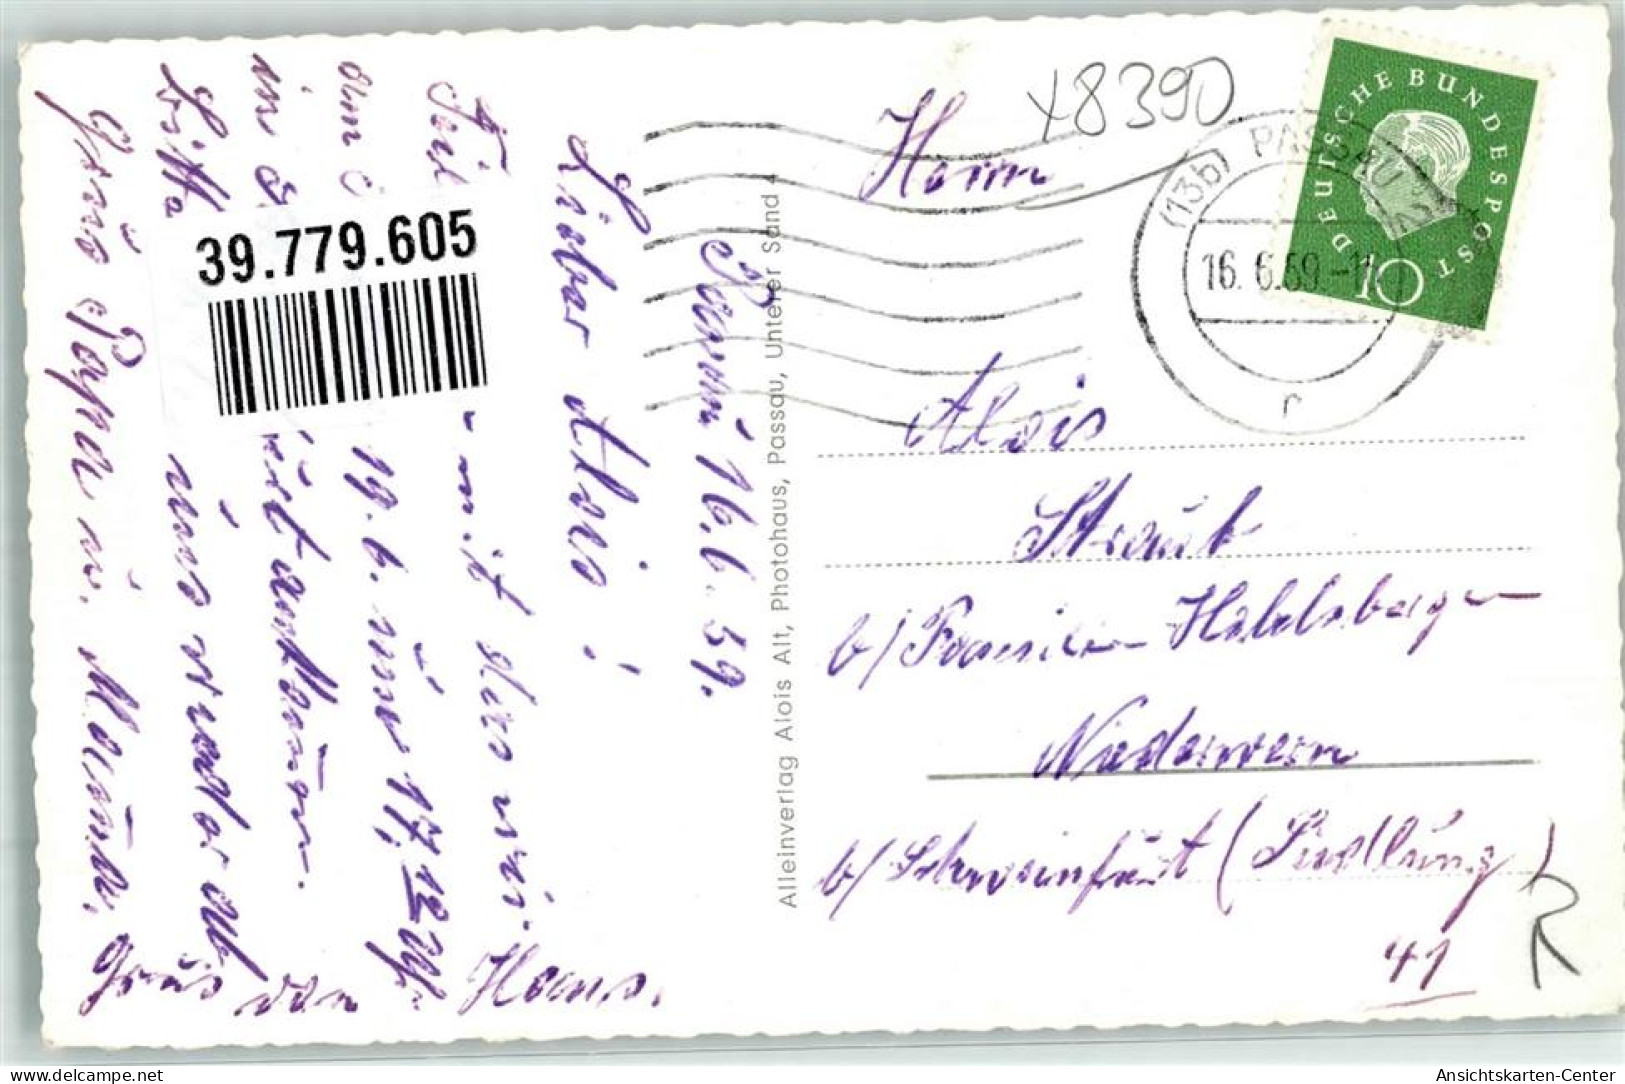 x8390
DEUTSCHE BUNDESPOST
10
(13b) PASSAU 2
16. 6.59
r
Herrn
Alois
Straub
b/ Familie
Niederwern
b/ Schweinfurt (Siedlung)
41
Alleinverlag Alois Alt, Photohaus, Passau, Unterer Sand 4
Passau 16.6.59.
Lieber Alois!
Teile mit das wir
am 19.6. um 17,12 Uhr
in ankommen.
Bitte uns
Gruß Papa u. Mama.
Grus von Hans.
39.779.605
delcampe.net
Ansichtskarten-Center